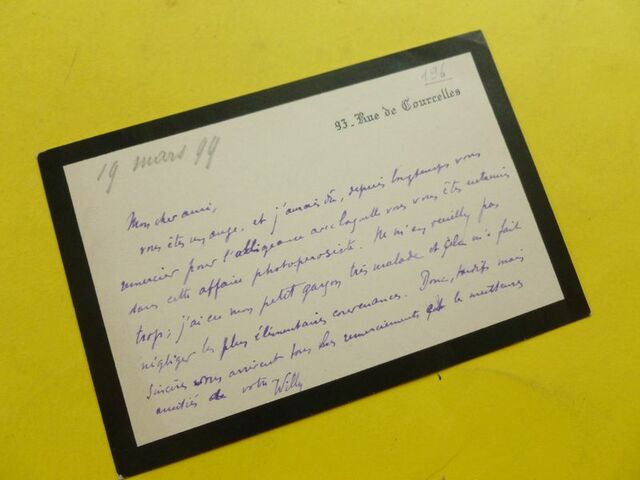 196
93. Rue de Courcelles
19 mars 99
Mon cher ami,
vous êtes un ange, et j'aurais dû, depuis longtemps vous
remercier pour l'obligeance avec laquelle vous vous êtes
dans cette affaire Ne m'en veuillez pas
trop; j'ai eu mon petit garçon très malade et cela m'a fait
négliger les plus élémentaires convenances. Donc, tardifs mais
sincères vous arrivent tous les remerciements et les meilleures
amitiés de votre Willy